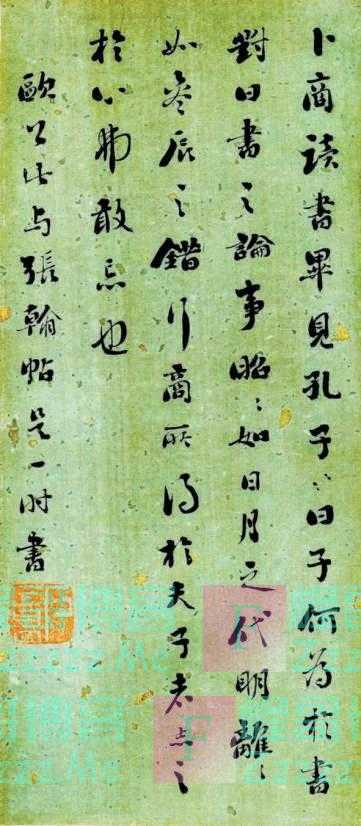 卜商读書畢見孔子〻曰子何為於書
對曰書之論事昭〻如日月之代明離〻
如參辰之錯行商所得於夫子者志之
於心弗敢忘也
歐公此与張翰帖是一时書